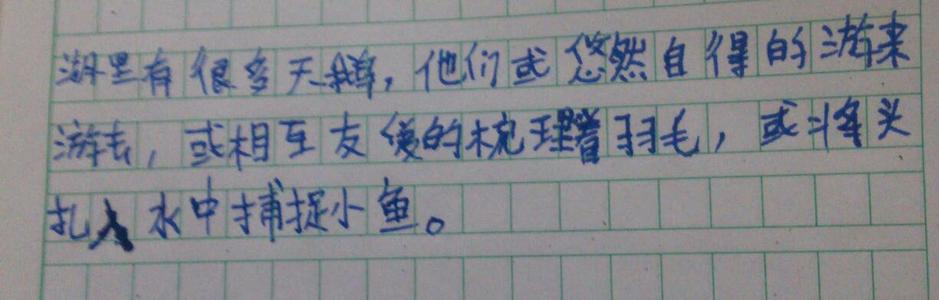 湖里有很多天鹅，他们或悠然自得的游来
游去，或相互友爱的梳理着羽毛，或将头
扎入水中捕捉小鱼。